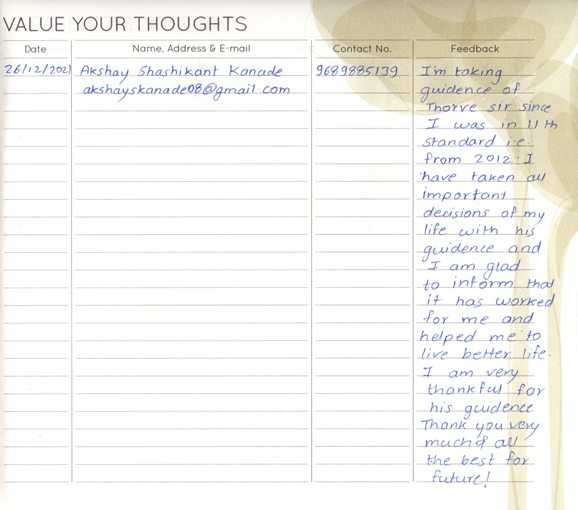 VALUE YOUR THOUGHTS
Date Name, Address & E-mail Contact No. Feedback
26/12/2021 Akshay Shashikant Kanade 9689885139 I'm taking
akshayskanade08@gmail.com guidence of
Thorve sir since
I was in 11th
standard i.e.
from 2012. I
have taken all
important
decisions of my
life with his
guidence and
I am glad
to inform that
it has worked
for me and
helped me to
live better life.
I am very
thankful for
his guidence
Thank you very
much & all
the best for
future!